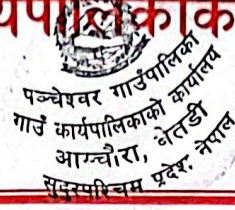 र्यपालिकाक
पञ्चेश्वर गाउँपालिका
गाउँ कार्यपालिकाको कार्यालय
आग्चौरा, बैतडी
सुदुरपश्चिम प्रदेश, नेपाल